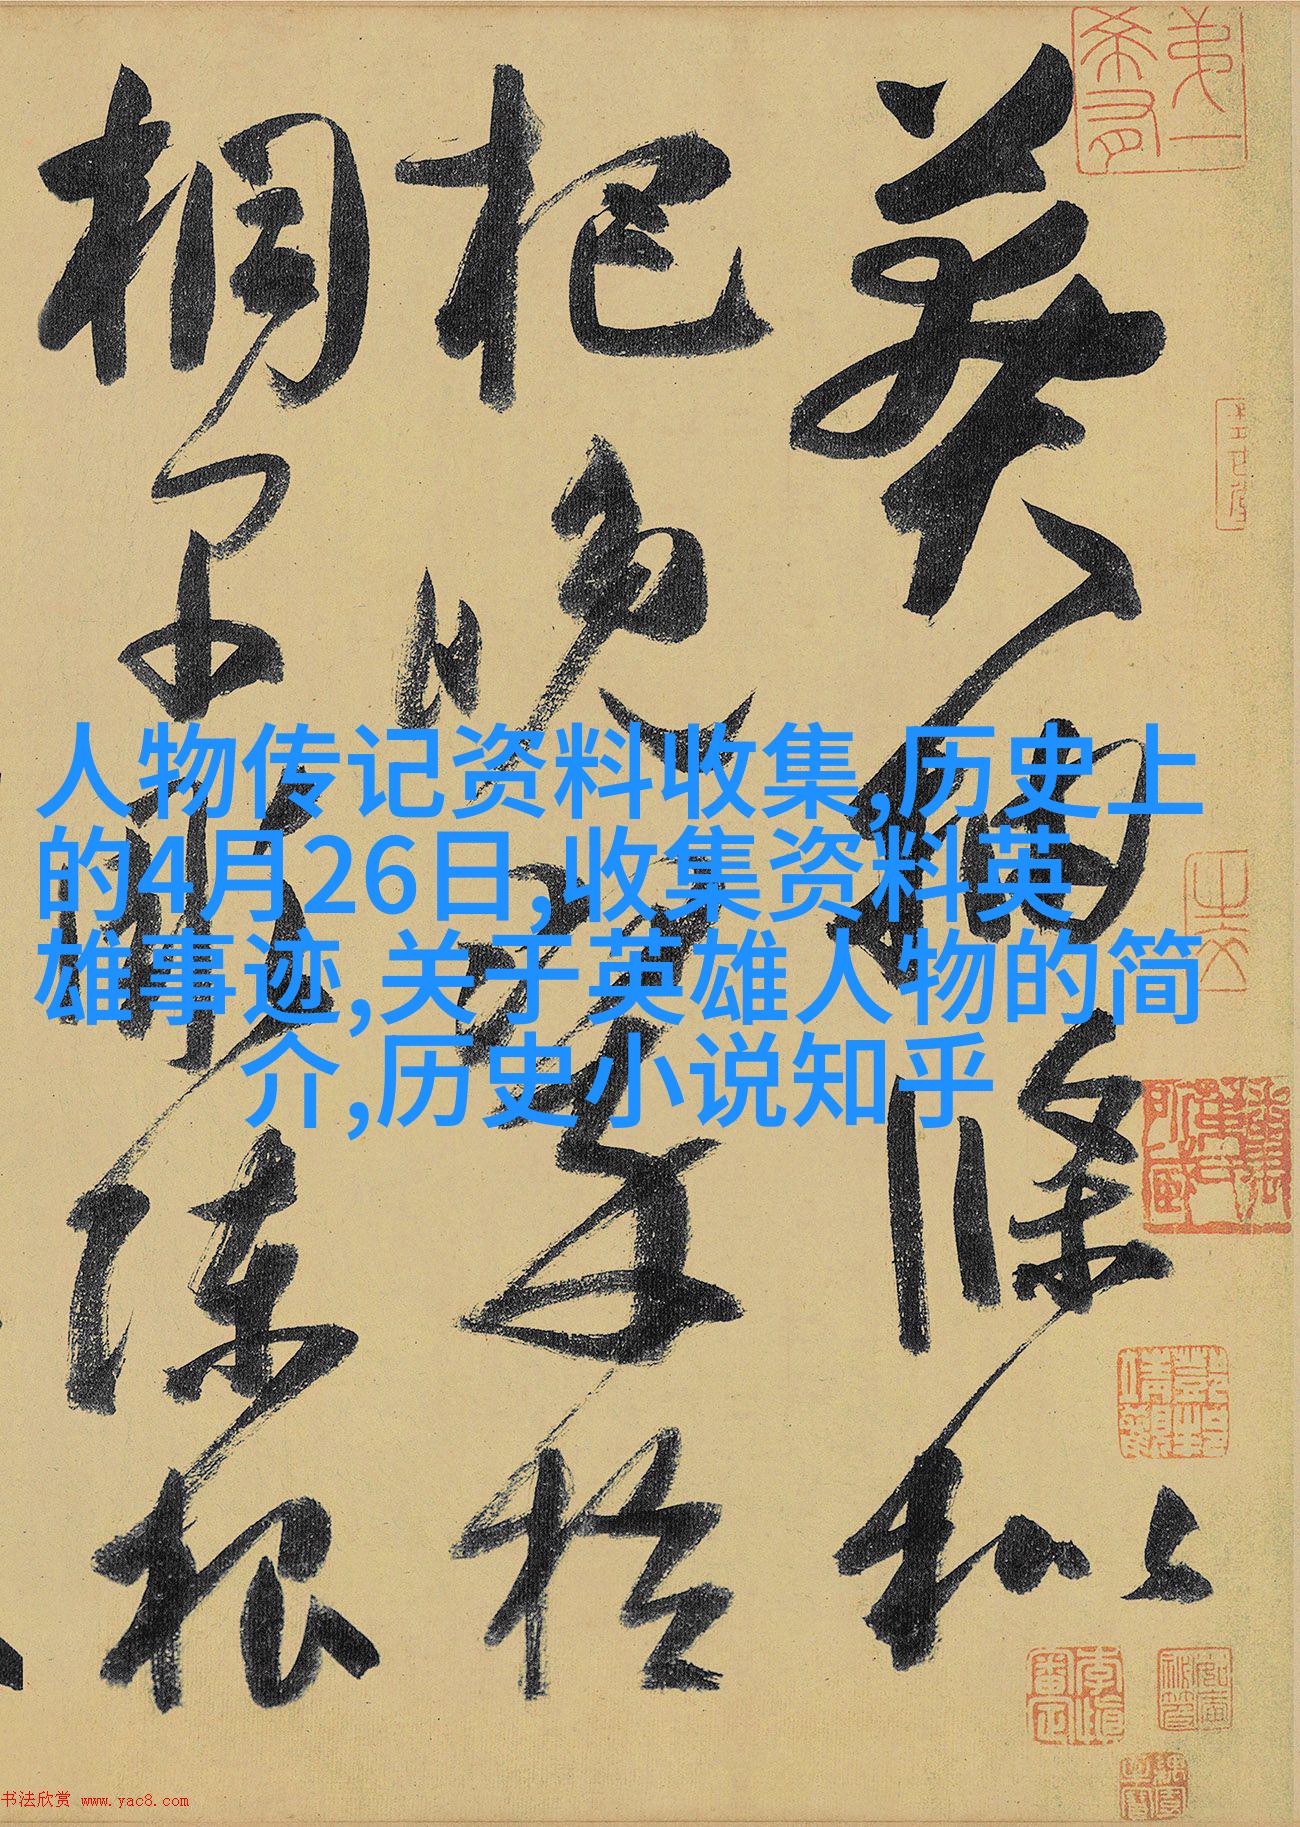 莽抽條枇
杷晚翠梧
桐早凋陳根
人物传记资料收集,历史上
的4月26日,收集资料英
雄事迹,关于英雄人物的简
介,历史小说知乎
书法欣赏 www.yac8.com